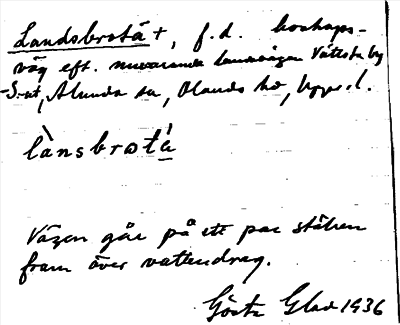 Landsbrotå +, f.d. bockaps-
väg eft. nuvarande landsvägen Vättsta by
-Srat, Alunda sn, Olands hd, Upps. l.
lànsbrotá
Vägen går på ett par ställen
fram över vattendrag.
Gösta Glad 1936